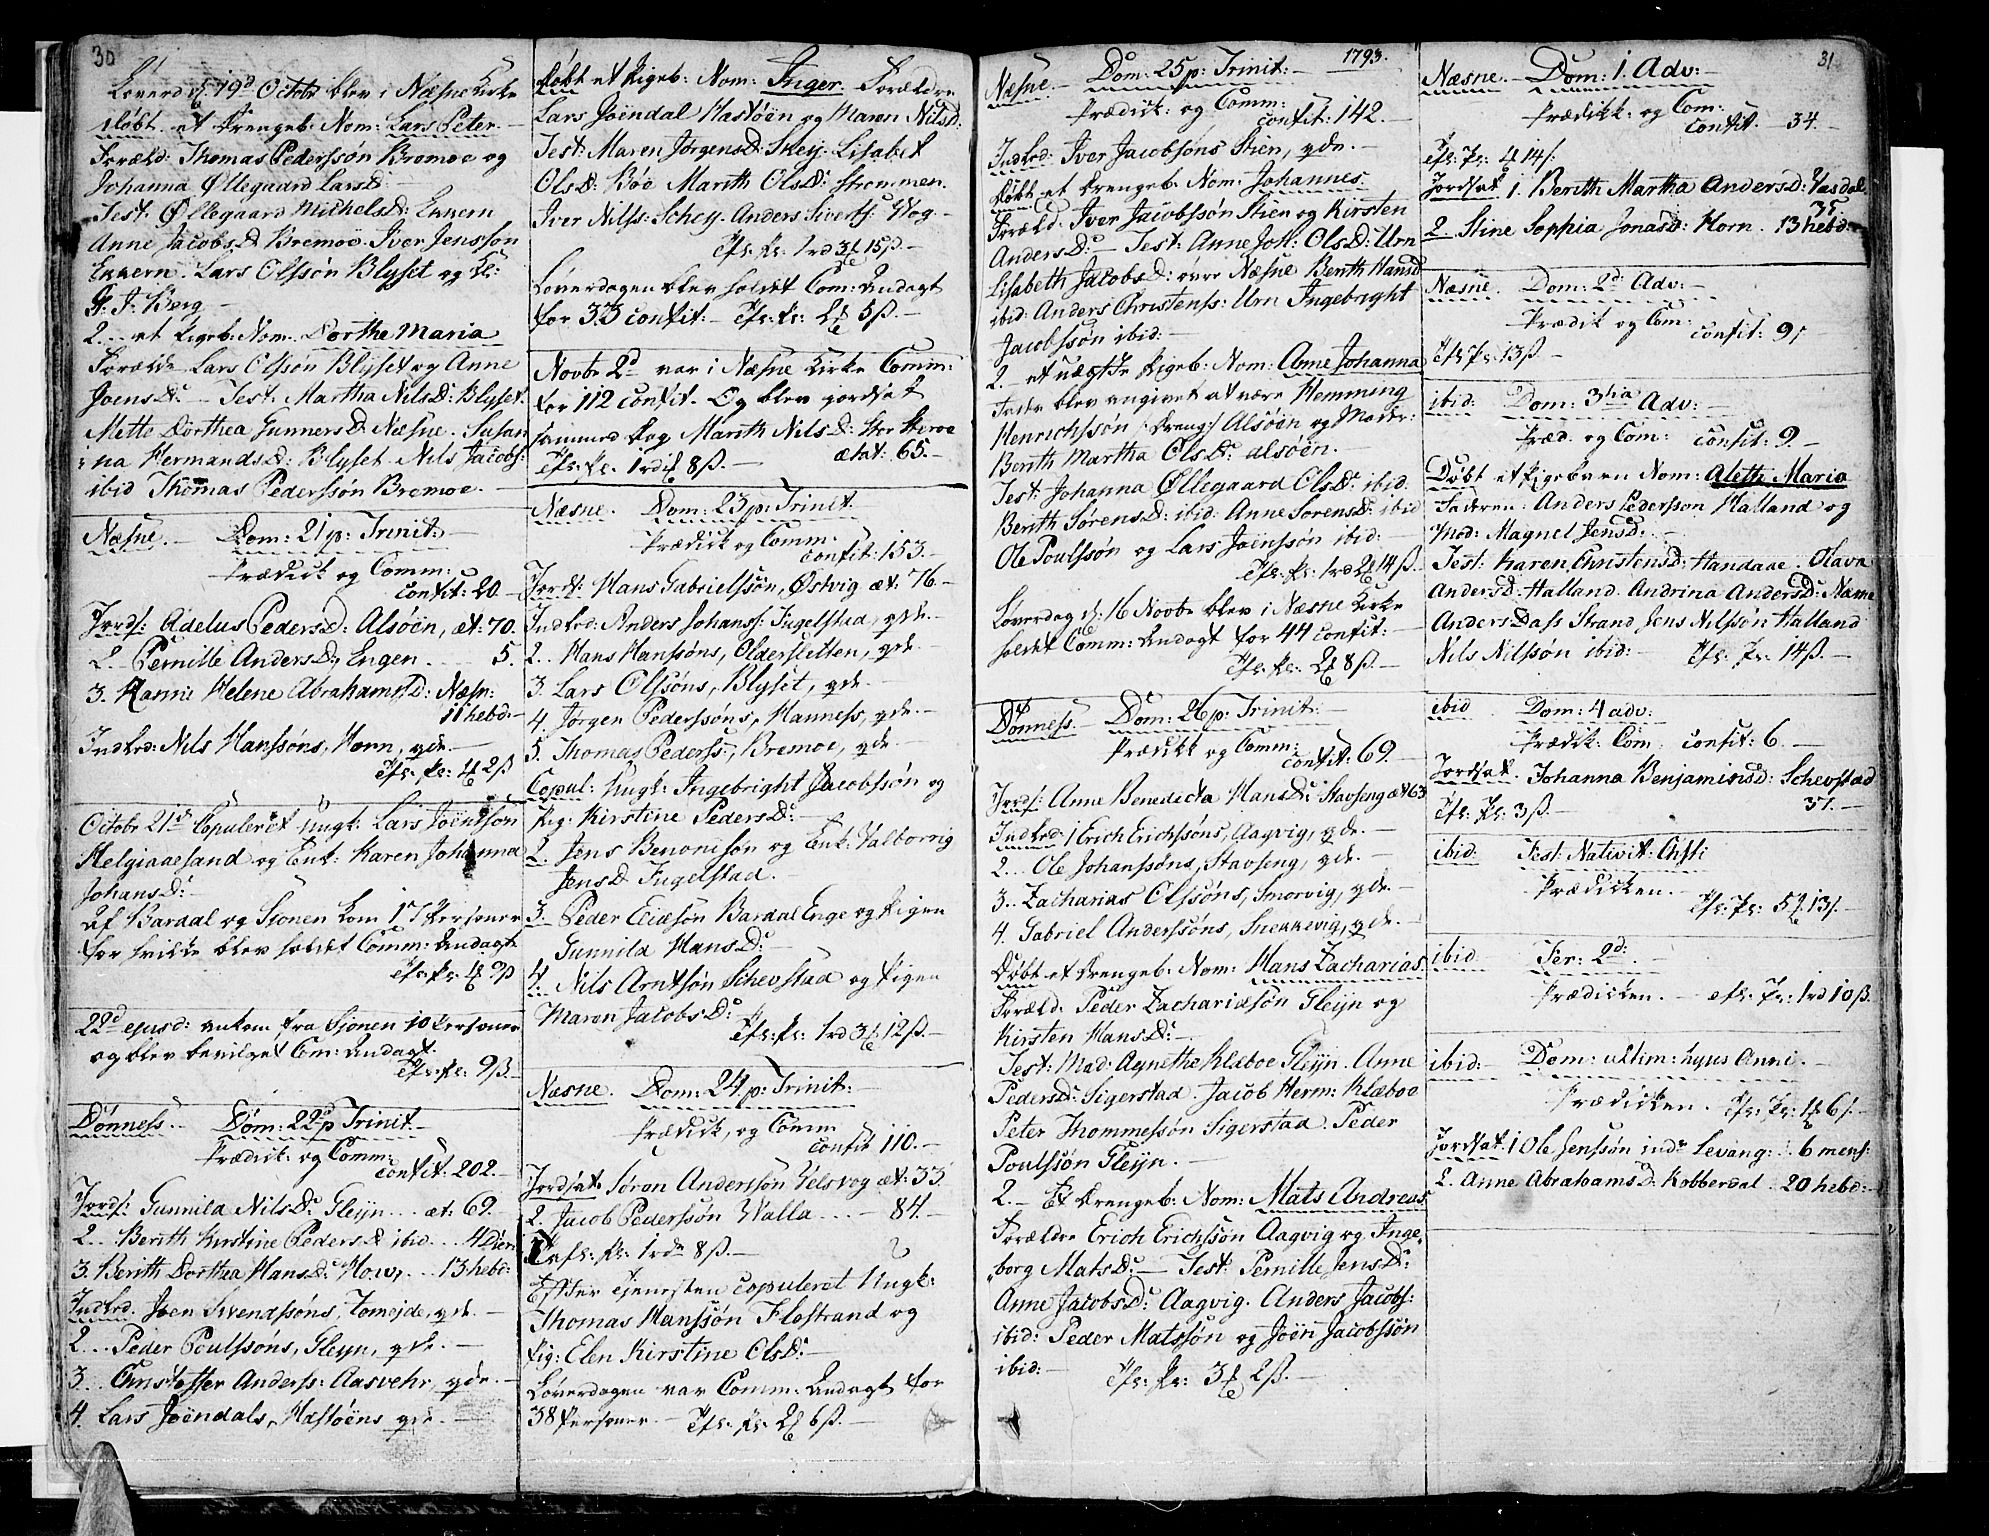 30
Løverd: d: 19d Octobr blev i Næsne Kirke
døbt et Drengeb: Nom: Lars Peter.
Foræld: Thomas Pederssøn Bremoe og
Johanna Øllegaard Larsd:
Test: Øllegaard MichelsD: Exxern
Anne JacobsD Bremoe. Iver Jensson
Exxern. Lars Olssøn Blyset og Kl:
G: J: Berg
2... et Pigeb: Nom: Dorthe Maria
Forældr Lars Olssøn Blyset og Anne
JoensD: Test: Martha NilsD: Blyset.
Mette Dorthea GunnersD: Næsne. Susan
na HermandsD: Blyset. Nils Jacobs:
ibid Thomas Pederssøn Bremoe.
Næsne. Dom: 21 p: Trinit:
Prædick og Comm:
confit: 20.
Jords: Adelus PedersD: Alsøen, æt: 70.
2. Pernille AndersD: Engen.... 5.
3. Hanne Helene AbrahamsD: Næsn:
11 hebd:
Indled: Nils Hanssøns, Horn, qde.
Efs: Pr: 4 2ß
Octobr 21d Copuleret Ungk: Lars Joenssøn
Helgiaaesand og Enk: Karen Johanna
JohansD:
Af Bardal og Sjonen kom 17 Personer
for hvilke blev holdet Comm: Andagt
Efs: Pr: 4 9ß
22d ejusd: ankom fra Sjonen 10 Personer
og blev bevilget Com: Andagt.
Efs: Pr: 9ß
Dønness. Dom: 22d p Trinit
Prædick: og Comm:
confit: 202.
Jords: Gunnild NilsD: Gleyn... æt: 69.
2.. Berith Kirstine PedersD ibid... 4 Dier
3. Berith Dorthea HansD: How,... 13 hebd:
Indled. Joen Svendssøns, Tomejde, qde.
2... Peder Poulssøns, Gleyn, qde.
3.. Christoffer Anderss: Aasvehr, qde.
4. Lars Joendals, Hastøens qde.
Døbt et Pigeb: Nom: Inger. Forældre
Lars Joendal Hastøen og Maren NilsD:
Test: Maren JørgensD: Skey. Lisabet
OlsD: Böe Marith OlsD: Strømmen.
Iver Nilss: Schey. Anders Siverts: Wog
Efs: Pr: 1rd 3 15ß.
Løverdagen blev holdet Com: Andagt
for 33 confit: Efs: Pr: 2 5ß.
Novbr 2d var i Næsne Kirke Comm:
for 112 confit. Og blev jordsat
sammed Dag Marith NilsD: Stor Skeroe
Efs: Pr: 1rd 8ß. ætat: 65.
Næsne. Dom: 23 p: Trinit
Prædick og Comm:
confit: 153.
Jords: Hans Gabrielssøn, Østvig æt: 76
Indled: Anders Johans: Fugelstad, qde.
2.. Hans Hanssøns, Oldersletten, qde
3. Lars Olssøns, Blyset, qde.
4. Jørgen Pederssøns, Hanness, qde.
5. Thomas Pederss:, Bremoe, qde.
Copul: Ungk: Ingebright Jacobssøn og
Pig: Kirstine PedersD:
2. Jens Benonisøn og Enk: Valborrig
JensD Fugelstad.
3. Peder Ericsøn Bardal Enge og Pigen
Gunnild HansD:
4. Nils Arntsøn Schevstad og Pigen
Maren JacobsD:
Efs: Pr: 1rd 3 12ß.
Næsne. Dom: 24 p: Trinit:
Prædick, og Comm
Confit 110.
Jordsat Søren Anderssøn Velsvog æt: 33
2. Jacob Pederssøn Walla.... 84.
Efs: Pr: 1rd 8ß.
Efter Tjenesten copuleret Ungk:
Thomas Hanssøn Flostrand og
Pig: Elen Kirstine OlsD:
Løverdagen var Comm: Andagt for
38 Personer. Efs: Pr: 2 6ß.
1793.
Næsne. Dom: 25 p: Trinit:
Prædick: og Comm:
confit: 142.
Indled: Iver Jacobsøns Stien, qde.
Døbt et Drengeb: Nom: Johannes.
Foræld: Iver Jacobssøn Stien og Kirsten
AndersD: Test: Anne Joh: OlsD: Urn
Lisabeth JacobsD: øvre Næsne Berith HansD
ibid: Anders Christenss: Urn Ingebright
Jacobssøn ibid:
2.. et uægte Pigeb: Nom: Anne Johanna
Fader blev angivet at være Hemming
Henrichssøn /: Dreng :/ Alsøen og Moder:
Berith Martha OlsD: alsøen.
Test: Johanna Øllegaard OlsD: ibid.
Berith SørensD: ibid: Anne SørensD: ibid
Ole Poulssøn og Lars Joenssøn ibid:
Efs: Pr: 1rd 2 14ß.
Løverdag d: 16 Novbr blev i Næsne Kirke
holdet Comm: Andagt for 44 confit:
Efs: Pr: 2 8ß.
Dønness. Dom: 26 p: Trinit:
Prædikk og Comm:
confit: 69.
Jords: Anne Benedicta HansD: Stavseng æt 63
Indled: 1 Erich Erichssøns, Aagvig, qde.
2... Ole Johanssøns, Stavseng, qde.
3.. Zacharias Olssøns, Smorvig, qde
4. Gabriel Anderssøns, Snekkevig, qde.
Døbt et Drengeb: Nom: Hans Zacharias
Foræld: Peder Zachariasøn Gleyn og
Kirsten HansD:
Test: Mad: Agnethe Klæboe Gleyn. Anne
PedersD: Sigerstad. Jacob Herm: Klæboe
Peter Thommessøn Sigerstad. Peder
Poulssøn Gleyn.
2.. Et Drengeb: Nom: Mats Andreas
Forældre Erich Erichssøn Aagvig og Inge=
borg MatsD: Test: Pernille JensD:
Anne JacobsD: Aagvig. Anders Jacobs:
ibid: Peder Matssøn og Joen Jacobssøn
ibid:
Efs: Pr: 3 2ß.
31
Næsne. Dom: 1. Adv:
Prædikk: og Com:
confit. 34.
Efs: Pr: 4 14ß
Jordsat 1. Berith Martha AndersD: Vasdal.
35
2. Stine Sophia JonasD: Horn. 13 hebd:
Næsne. Dom: 2d Adv:
Prædick og Com:
confit: 91
Efs: Pr: 13ß
ibid: Dom: 3tia Adv:
Præd. og Com: confit: 9.
Døbt et Pigebarn Nom: Aleth Maria
Faderen: Anders Pedersson Halland og
Mod: Magnel JensD:
Test: Karen ChristensD: Handaae. Olava
AndersD: Halland. Andrina AndersD: Næsne
Anders Dass Strand Jens Nilssøn Halland
Nils Nilssøn ibid: Efs: Pr: 14ß.
ibid Dom: 4 adv:
Prædik: Com. confit: 6.
Jordsat. Johanna BenjaminsD: Schevstad
Efs: Pr: 3ß. 37.
ibid: Fest: Nativit: Chsti
Prædicken.
Efs: Pr: 5 13ß.
ibid Fer: 2d:
Prædicken. Efs: Pr: 1rd 10ß.
ibid: Dom: ultim: hujus Anni.
Prædicken. Efs: Pr: 4 6ß.
Jordsat 1 Ole Jenssøn indr Levang: 6 mens:
2. Anne AbrahamsD: Kobberdal. 20 hebd: